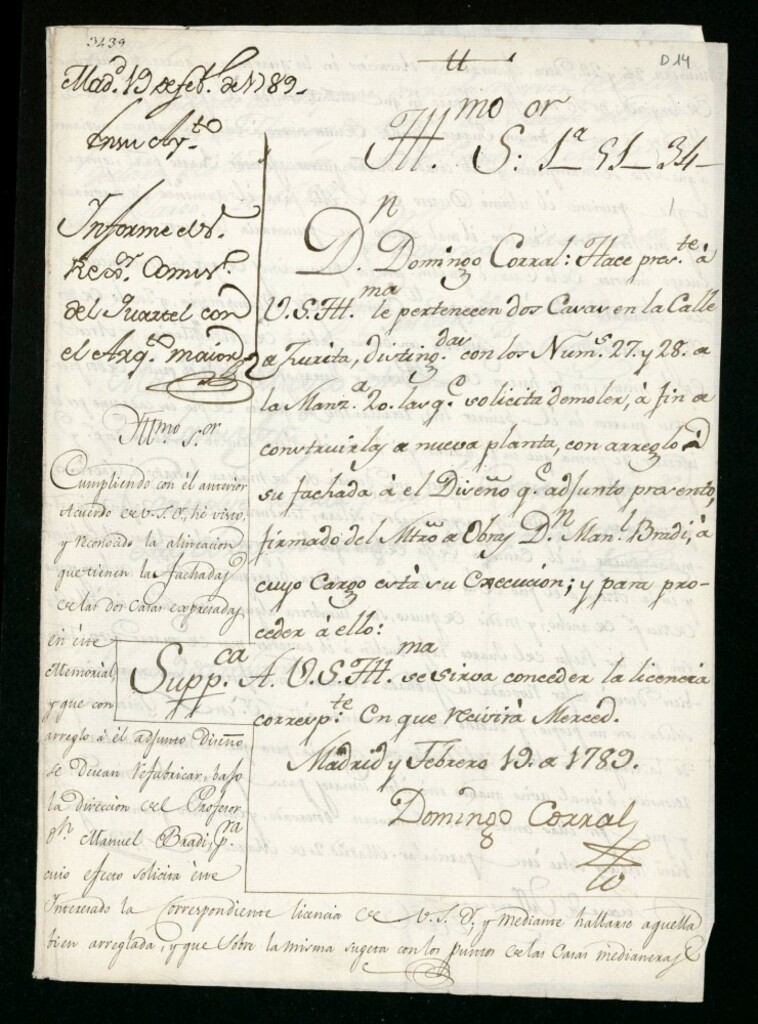 3439
D 14
tt
Mad.d 19 de feb.o de 1789.
En su Ay.to
Informe el S.r
Rexo.r Comis.o
del Quartel con
el Arq.to maior
Ill.mo S.or
Cumpliendo con él anterior
Acuerdo de V.S.Y., hé visto,
y reconocido la alineacion
que tienen las fachadas
de las dos Casas expresadas
en éste
Memorial,
y que con
arreglo á él adjunto Diseño
se decean reficar, baxo
la dirección del Profesor
D.n Manuel Bradi, p.ra
cuio efecto solicita éste
Interesado la correspondiente licencia de V.S.Y.; y mediante hallarse aquella
bien arreglada, y que sobre la misma sugeta con los puntos de las Casas medianeras
Ill.mo S.or 1.a 51_34_
D.n Domingo Corral: Hace pres.te à
V.S.Ill.ma le pertenecen dos Casas en la Calle
de Zurita, disting.das con los Num.s 27. y 28. de
la Manz.a 20. las q.e solicita demoler, à fin de
construirlas de nueva planta, con arreglo à
su fachada à el Diseño q.e adjunto presento,
firmado del Mtro de Obras D.n Man.l Bradi, à
cuyo Cargo está su Execucion; y para pro-
ceder à ello:
Supp.ca A. V.S.Ill.ma se sirva conceder la licencia
corresp.te En que recivirà Merced.
Madrid y Febrero 19. de 1789.
Domingo Corral